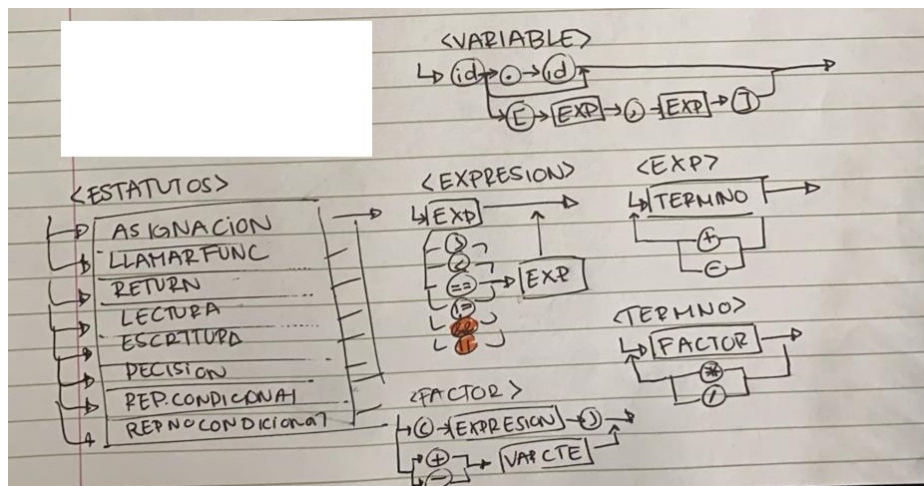 <VARIABLE>
id . id
[ EXP , EXP ]
<ESTATUTOS>
ASIGNACION
LLAMARFUNC
RETURN
LECTURA
ESCRITURA
DECISION
REP.CONDICIONAL
REPNOCONDICIONAL
<EXPRESION>
EXP
>
<
== EXP
!=
&&
||
<EXP>
TERMINO
+
-
<TERMNO>
FACTOR
*
/
<FACTOR>
( EXPRESION )
+
- VAR CTE